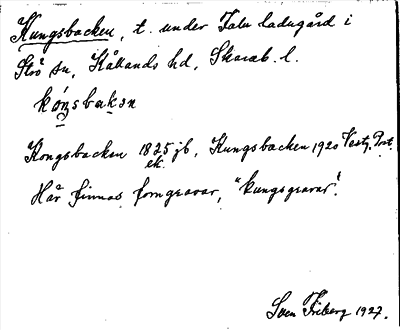 Kungsbacken, t. under Tala ladugård i
Strö sn, Kållands hd, Skarab. l.
kóŋsbakən
Kongsbacken 1825 jb, Kungsbacken 1920 Vestg. Post.
ek.
Här finnas forngravar, "kungsgravar".
Sven Friberg 1927.